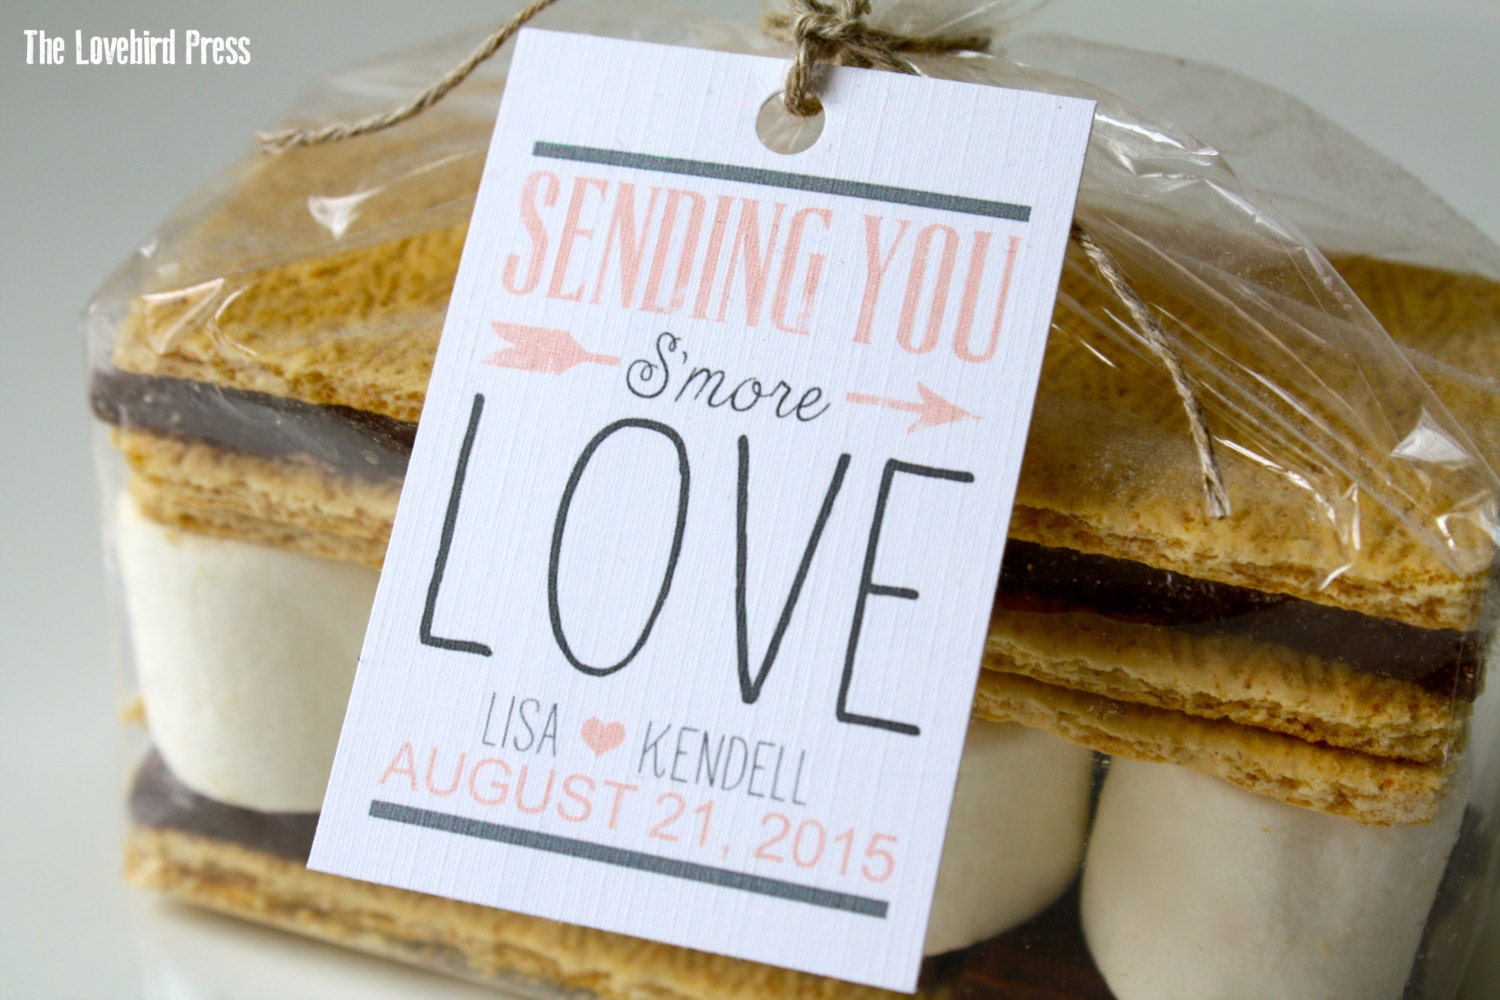 The Lovebird Press
SENDING YOU
S'more
LOVE
LISA ♥ KENDELL
AUGUST 21, 2015